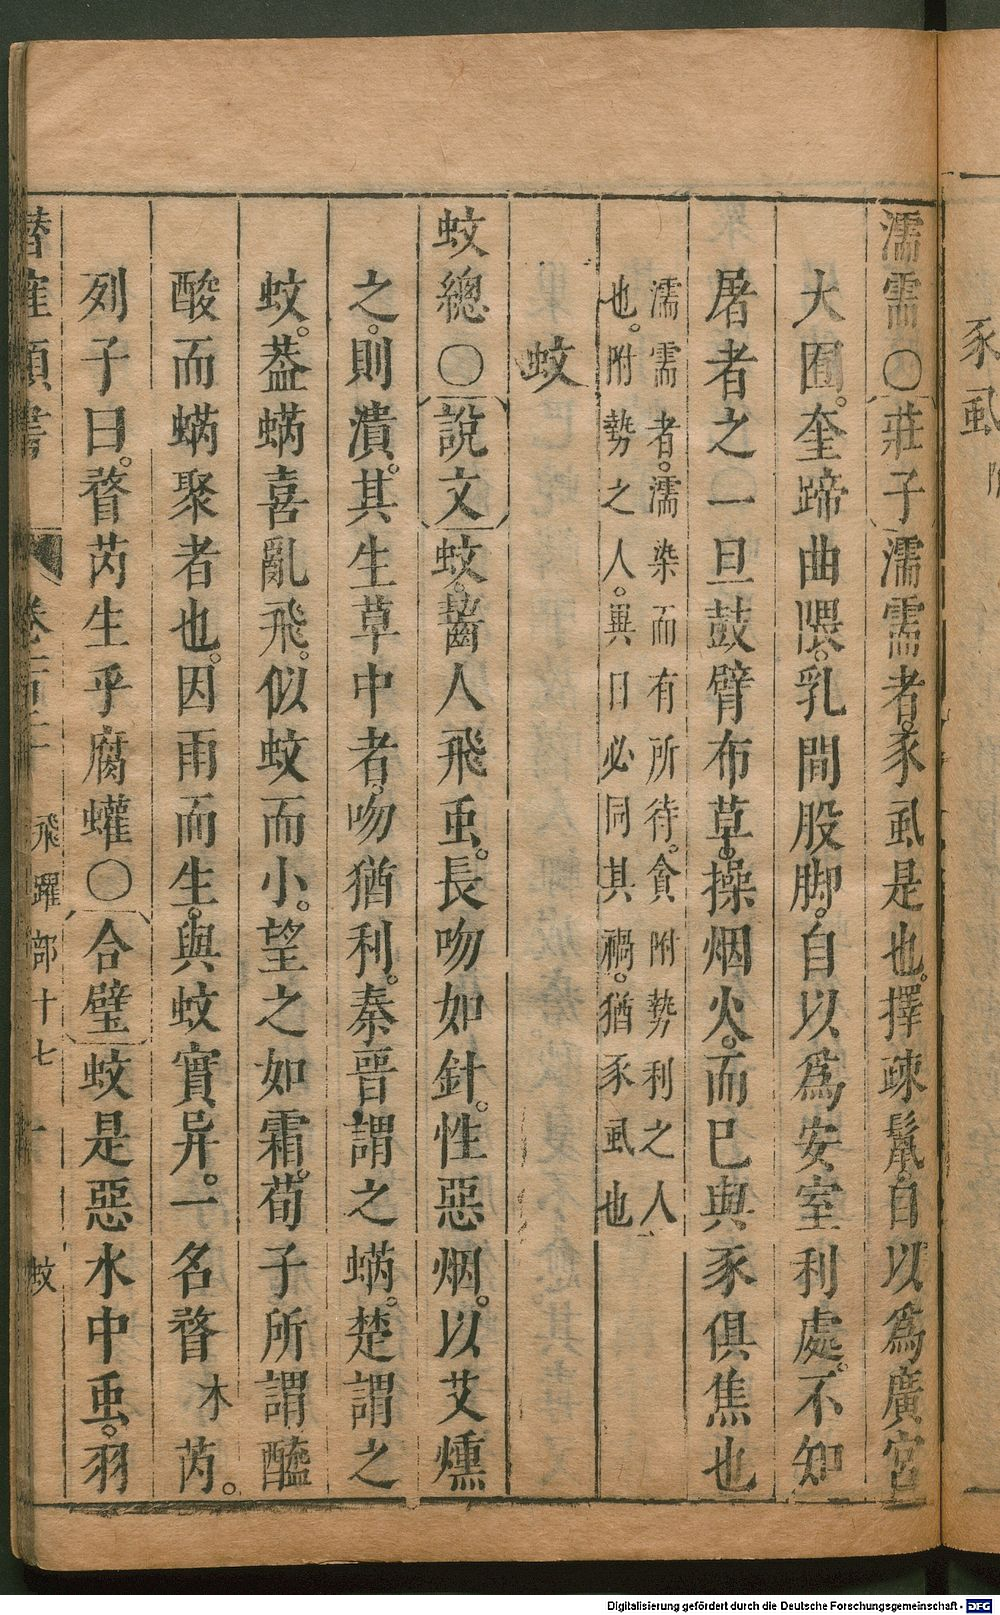 豕虱
濡需〇莊子濡需者。豕虱是也。擇疎鬣。自以爲廣宮
大囿。奎蹄曲隈。乳間股脚。自以爲安室利處。不知
屠者之一旦鼓臂布草。操烟火。而巳與豕俱焦也
濡需者。濡染而有所待。貪附勢利之人
也。附勢之人。異日必同其禍。猶豕虱也
蚊
蚊總〇說文蚊。齧人飛䖝。長吻如針。性惡烟。以艾燻
之。則潰。其生草中者。吻猶利。秦晉謂之蜹。楚謂之
蚊。葢蜹喜亂飛。似蚊而小。望之如霜。荀子所謂醯
酸而蜹聚者也。因雨而生。與蚊實异。一名瞀木芮。
列子曰。瞀芮生乎腐蠸〇合璧蚊是惡水中䖝。羽
潛確類書 飛躍部十七 一 蚊
Digitalisierung gefördert durch die Deutsche Forschungsgemeinschaft - DFG